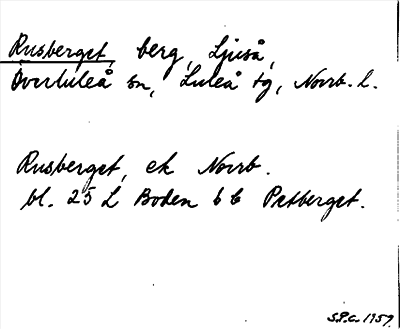 Rusberget, berg, Ljuså,
Överluleå sn, Luleå tg, Norrb. l.
Rusberget, ek Norrb.
bl. 25 L Boden 6 b Pesberget.
S.P.C. 1959.